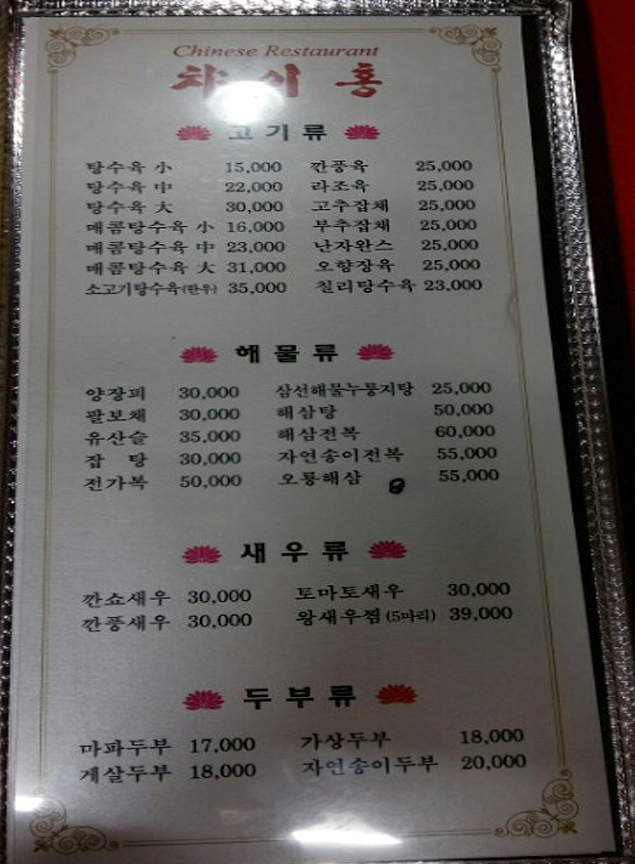 Chinese Restaurant
차이홍
고기류
탕수육 小 15,000 깐풍육 25,000
탕수육 中 22,000 라조육 25,000
탕수육 大 30,000 고추잡채 25,000
매콤탕수육 小 16,000 부추잡채 25,000
매콤탕수육 中 23,000 난자완스 25,000
매콤탕수육 大 31,000 오향장육 25,000
소고기탕수육(한우) 35,000 칠리탕수육 23,000
해물류
양장피 30,000 삼선해물누룽지탕 25,000
팔보채 30,000 해삼탕 50,000
유산슬 35,000 해삼전복 60,000
잡 탕 30,000 자연송이전복 55,000
전가복 50,000 오룡해삼 55,000
새우류
깐쇼새우 30,000 토마토새우 30,000
깐풍새우 30,000 왕새우찜(5마리) 39,000
두부류
마파두부 17,000 가상두부 18,000
게살두부 18,000 자연송이두부 20,000